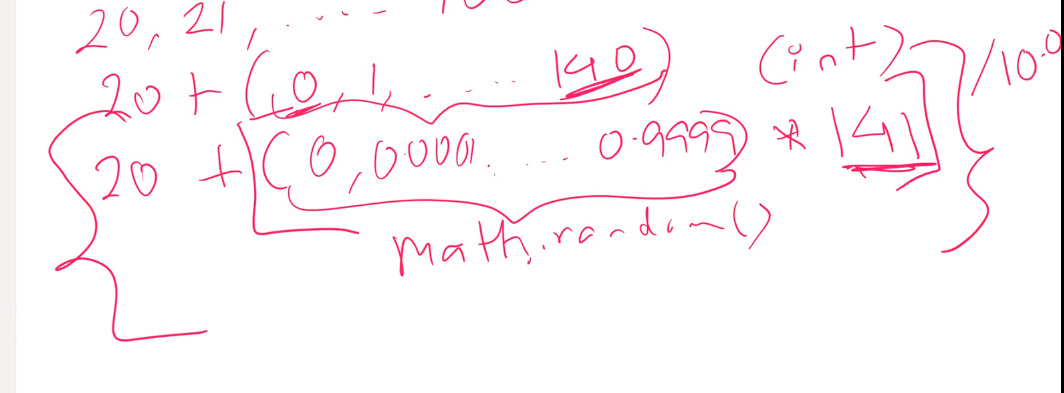 20, 21, ....
20 + (0, 1, .... 140) (int) /10.0
20 + (0, 0.0001. ... 0.9999) * 141
math.random()